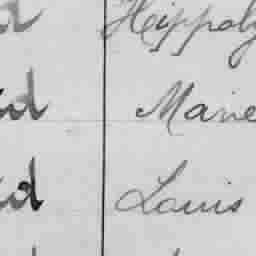 Hippoly
id Marie
id Louis